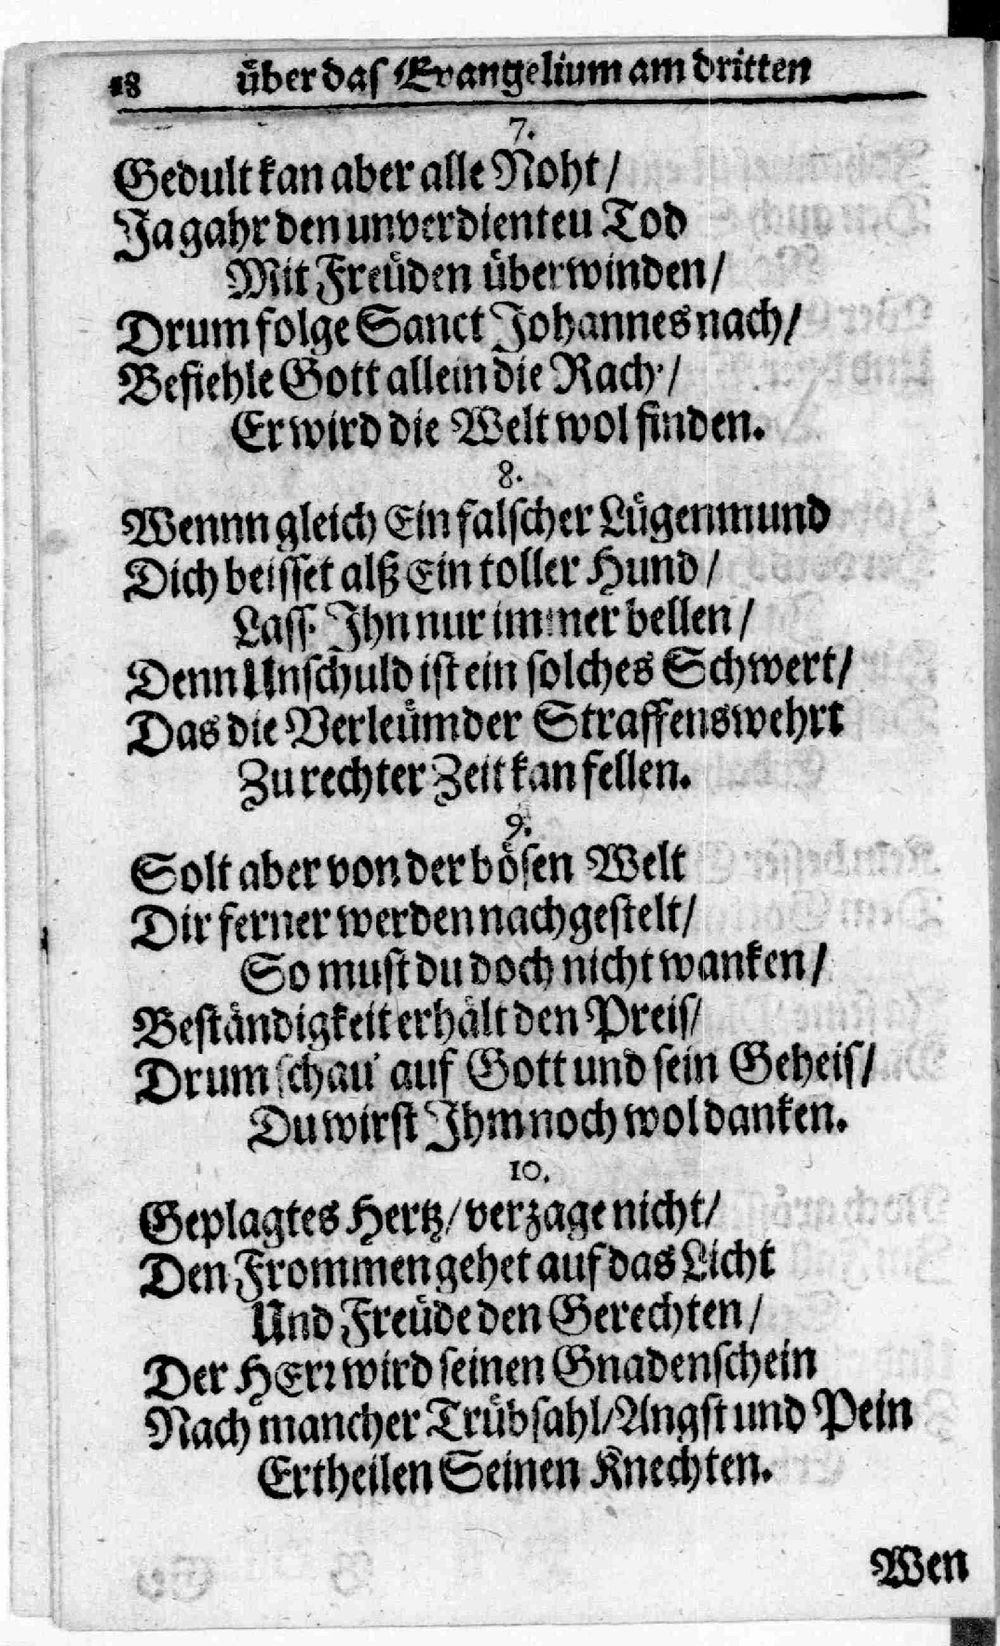 18 über das Evangelium am dritten
7.
Gedult kan aber alle Noht /
Ja gahr den unverdienteu Tod
Mit Freüden überwinden /
Drum folge Sanct Johannes nach /
Befiehle Gott allein die Rach' /
Er wird die Welt wol finden.
8.
Wennn gleich Ein falscher Lügenmund
Dich beisset alß Ein toller Hund /
Lass' Ihn nur immer bellen /
Denn Unschuld ist ein solches Schwert /
Das die Verleümder Straffens wehrt
Zu rechter Zeit kan fellen.
9.
Solt aber von der bösen Welt
Dir ferner werden nachgestelt /
So must du doch nicht wanken /
Beständigkeit erhält den Preis /
Drum schau' auf Gott und sein Geheis /
Du wirst Ihm noch wol danken.
10.
Geplagtes Hertz / verzage nicht /
Den Frommen gehet auf das Licht
Und Freüde den Gerechten /
Der HErr wird seinen Gnadenschein
Nach mancher Trübsahl / Angst und Pein
Ertheilen Seinen Knechten.
Wen